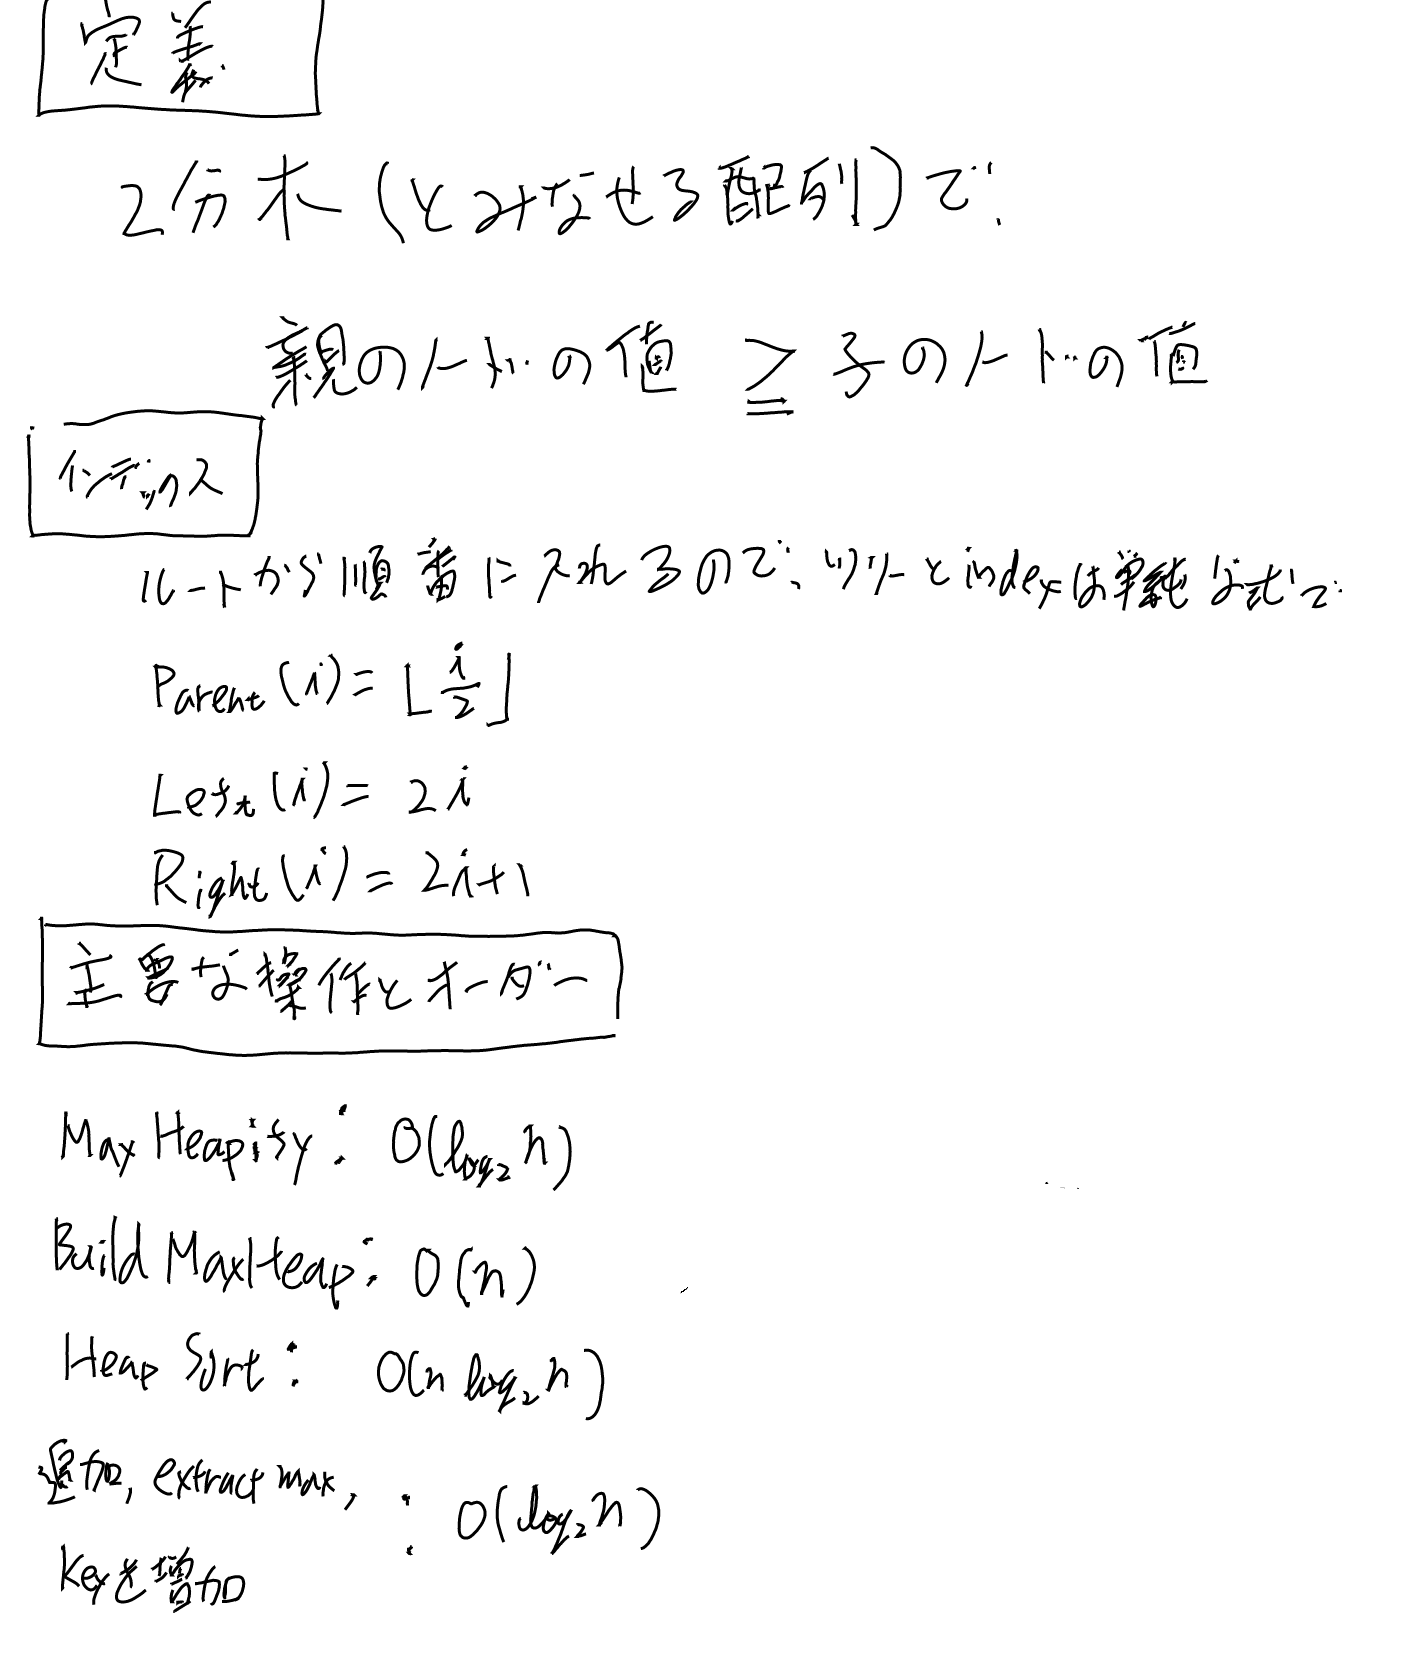 定義
2分木(とみなせる配列)で、
親のノードの値 ≧ 子のノードの値
インデックス
ルートから順番に入れるので、ツリーとindexは単純な式で
Parent(i) = ⌊i/2⌋
Left(i) = 2i
Right(i) = 2i+1
主要な操作とオーダー
Max Heapify : O(log₂ n)
Build MaxHeap : O(n)
Heap Sort : O(n log₂ n)
追加, extract max, : O(log₂ n)
Keyを増加